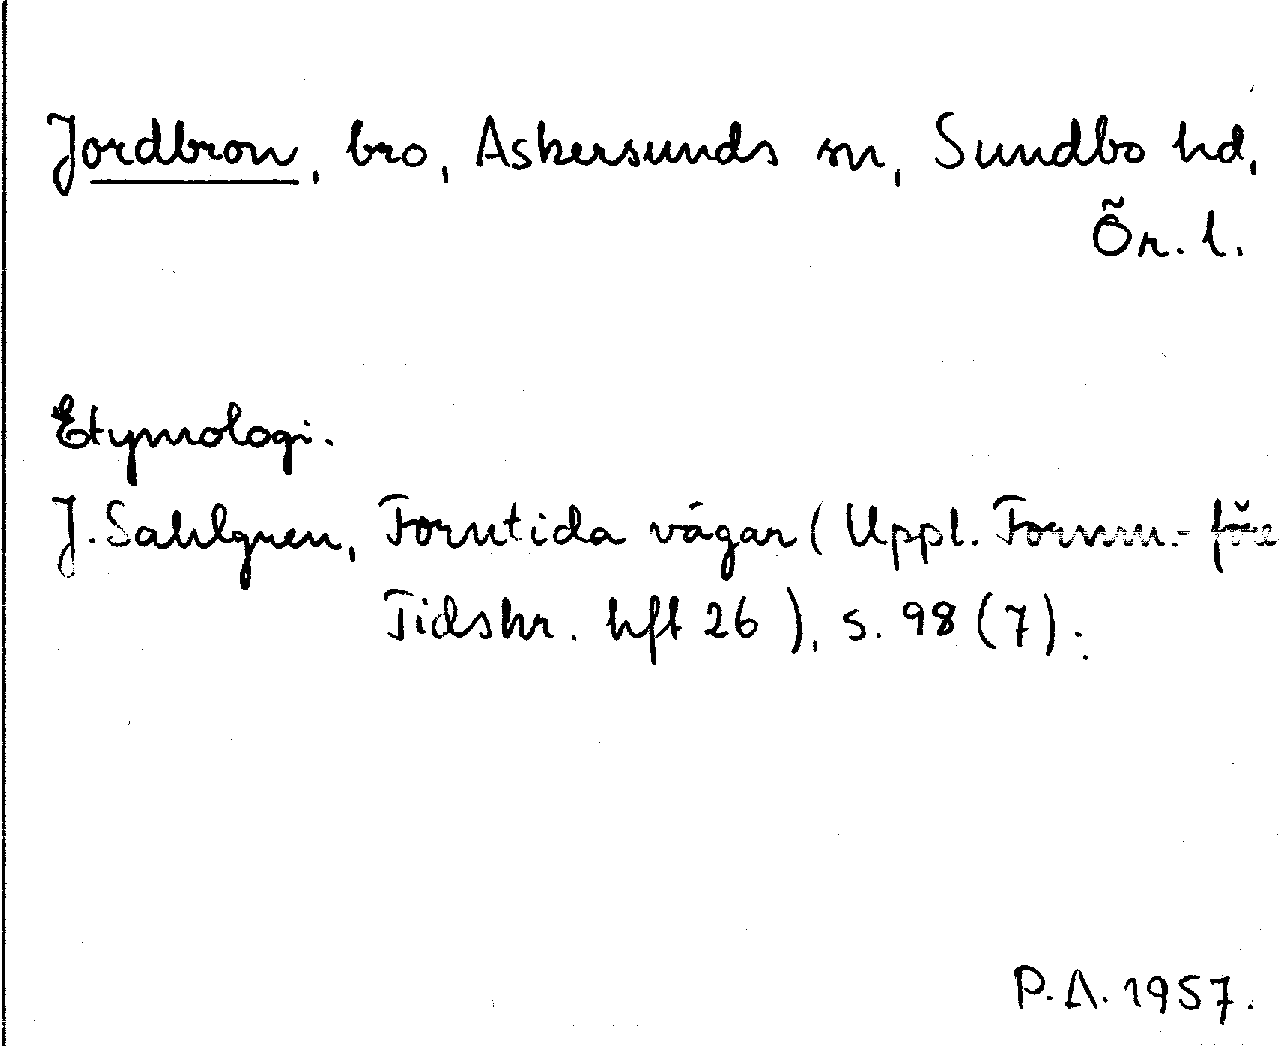 Jordbron, bro, Askersunds sn, Sundbo hd,
Ör. l.
Etymologi.
J. Sahlgren, Forntida vägar (Uppl. Fornm.- före
Tidskr. hft 26), s. 98 (7).
P.A. 1957.